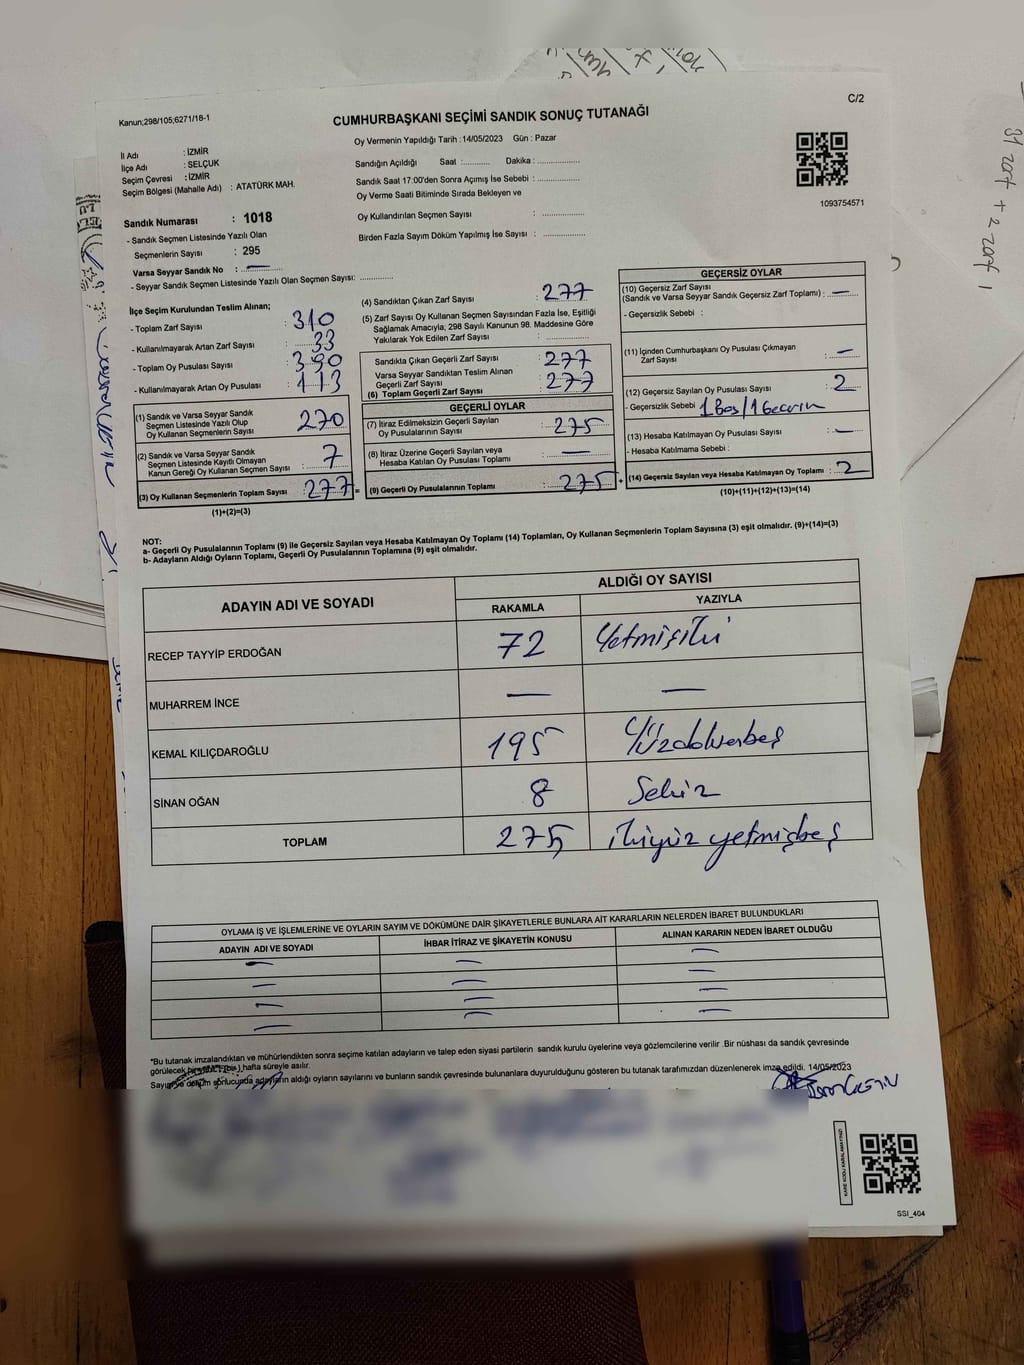 Kanun;298/105;6271/18-1
CUMHURBAŞKANI SEÇİMİ SANDIK SONUÇ TUTANAĞI
C/2
Oy Vermenin Yapıldığı Tarih :14/05/2023 Gün : Pazar
İl Adı : İZMİR
İlçe Adı : SELÇUK
Seçim Çevresi : İZMİR
Seçim Bölgesi (Mahalle Adı) : ATATÜRK MAH.
Sandığın Açıldığı Saat :.......... Dakika : ..............
Sandık Saat 17.00'den Sonra Açımış İse Sebebi : ..............
Oy Verme Saati Bitiminde Sırada Bekleyen ve
Oy Kullandırılan Seçmen Sayısı : ..............
Birden Fazla Sayım Döküm Yapılmış İse Sayısı : ..............
1093754571
Sandık Numarası : 1018
- Sandık Seçmen Listesinde Yazılı Olan
Seçmenlerin Sayısı : 295
Varsa Seyyar Sandık No : —
- Seyyar Sandık Seçmen Listesinde Yazılı Olan Seçmen Sayısı: ............
İlçe Seçim Kurulundan Teslim Alınan;
- Toplam Zarf Sayısı : 310
- Kullanılmayarak Artan Zarf Sayısı : 33
- Toplam Oy Pusulası Sayısı : 390
- Kullanılmayarak Artan Oy Pusulası : 113
(1) Sandık ve Varsa Seyyar Sandık
Seçmen Listesinde Yazılı Olup
Oy Kullanan Seçmenlerin Sayısı : 270
(2) Sandık ve Varsa Seyyar Sandık
Seçmen Listesinde Kayıtlı Olmayan
Kanun Gereği Oy Kullanan Seçmen Sayısı : 7
(3) Oy Kullanan Seçmenlerin Toplam Sayısı : 277 =
(1)+(2)=(3)
(4) Sandıktan Çıkan Zarf Sayısı : 277
(5) Zarf Sayısı Oy Kullanan Seçmen Sayısından Fazla İse, Eşitliği
Sağlamak Amacıyla; 298 Sayılı Kanunun 98. Maddesine Göre
Yakılarak Yok Edilen Zarf Sayısı : ..............
Sandıkta Çıkan Geçerli Zarf Sayısı : 277
Varsa Seyyar Sandıktan Teslim Alınan
Geçerli Zarf Sayısı
(6) Toplam Geçerli Zarf Sayısı : 277
GEÇERLİ OYLAR
(7) İtiraz Edilmeksizin Geçerli Sayılan
Oy Pusulalarının Sayısı : 275
(8) İtiraz Üzerine Geçerli Sayılan veya
Hesaba Katılan Oy Pusulası Toplamı : —
(9) Geçerli Oy Pusulalarının Toplamı : 275 +
GEÇERSİZ OYLAR
(10) Geçersiz Zarf Sayısı
(Sandık ve Varsa Seyyar Sandık Geçersiz Zarf Toplamı) : —
- Geçersizlik Sebebi :
(11) İçinden Cumhurbaşkanı Oy Pusulası Çıkmayan
Zarf Sayısı : —
(12) Geçersiz Sayılan Oy Pusulası Sayısı : 2
- Geçersizlik Sebebi : 1 Boş/1
(13) Hesaba Katılmayan Oy Pusulası Sayısı : —
- Hesaba Katılmama Sebebi :
(14) Geçersiz Sayılan veya Hesaba Katılmayan Oy Toplamı : 2
(10)+(11)+(12)+(13)=(14)
NOT:
a- Geçerli Oy Pusulalarının Toplamı (9) ile Geçersiz Sayılan veya Hesaba Katılmayan Oy Toplamı (14) Toplamları, Oy Kullanan Seçmenlerin Toplam Sayısına (3) eşit olmalıdır. (9)+(14)=(3)
b- Adayların Aldığı Oyların Toplamı, Geçerli Oy Pusulalarının Toplamına (9) eşit olmalıdır.
ADAYIN ADI VE SOYADI ALDIĞI OY SAYISI
RAKAMLA YAZIYLA
RECEP TAYYİP ERDOĞAN 72 Yetmişiki
MUHARREM İNCE — —
KEMAL KILIÇDAROĞLU 195 Yüzdoksanbeş
SİNAN OĞAN 8 Sekiz
TOPLAM 275 ikiyüz yetmişbeş
OYLAMA İŞ VE İŞLEMLERİNE VE OYLARIN SAYIM VE DÖKÜMÜNE DAİR ŞİKAYETLERLE BUNLARA AİT KARARLARIN NELERDEN İBARET BULUNDUKLARI
ADAYIN ADI VE SOYADI İHBAR İTİRAZ VE ŞİKAYETİN KONUSU ALINAN KARARIN NEDEN İBARET OLDUĞU
— — —
— — —
— — —
— — —
*Bu tutanak imzalandıktan ve mühürlendikten sonra seçime katılan adayların ve talep eden siyasi partilerin sandık kurulu üyelerine veya gözlemcilerine verilir .Bir nüshası da sandık çevresinde
görülecek bir yere 1(bir) hafta süreyle asılır.
Sayım ve döküm sonucunda adayların aldığı oyların sayılarını ve bunların sandık çevresinde bulunanlara duyurulduğunu gösteren bu tutanak tarafımızdan düzenlenerek imza edildi. 14/05/2023
KARE KODU KARALAMAYINIZ!
SSİ_404